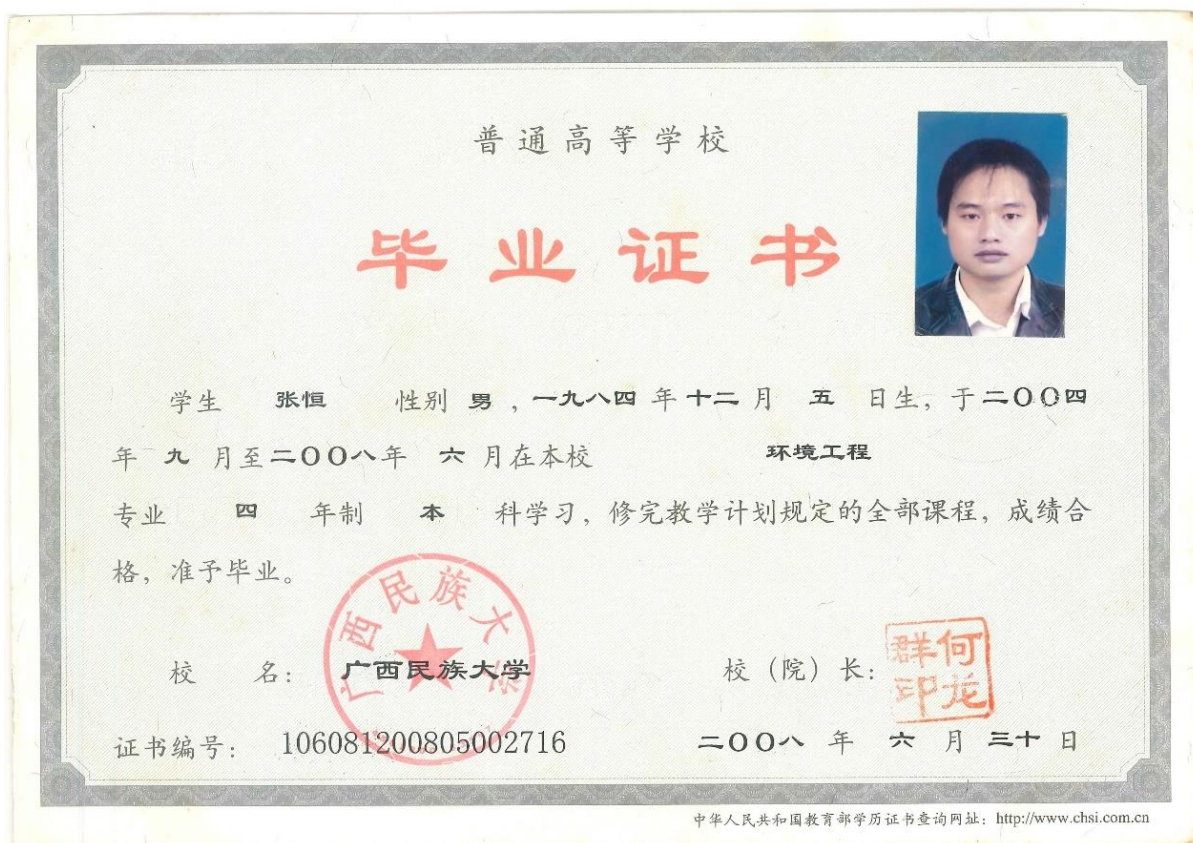 普通高等学校
毕业证书
学生 张恒 性别 男，一九八四 年 十二 月 五 日生，于二〇〇四
年 九 月至二〇〇八年 六 月在本校 环境工程
专业 四 年制 本 科学习，修完教学计划规定的全部课程，成绩合
格，准予毕业。
广西民族大学
校 名： 广西民族大学
校（院）长：
何龙群印
证书编号： 106081200805002716
二〇〇八 年 六 月 三十 日
中华人民共和国教育部学历证书查询网址：http://www.chsi.com.cn